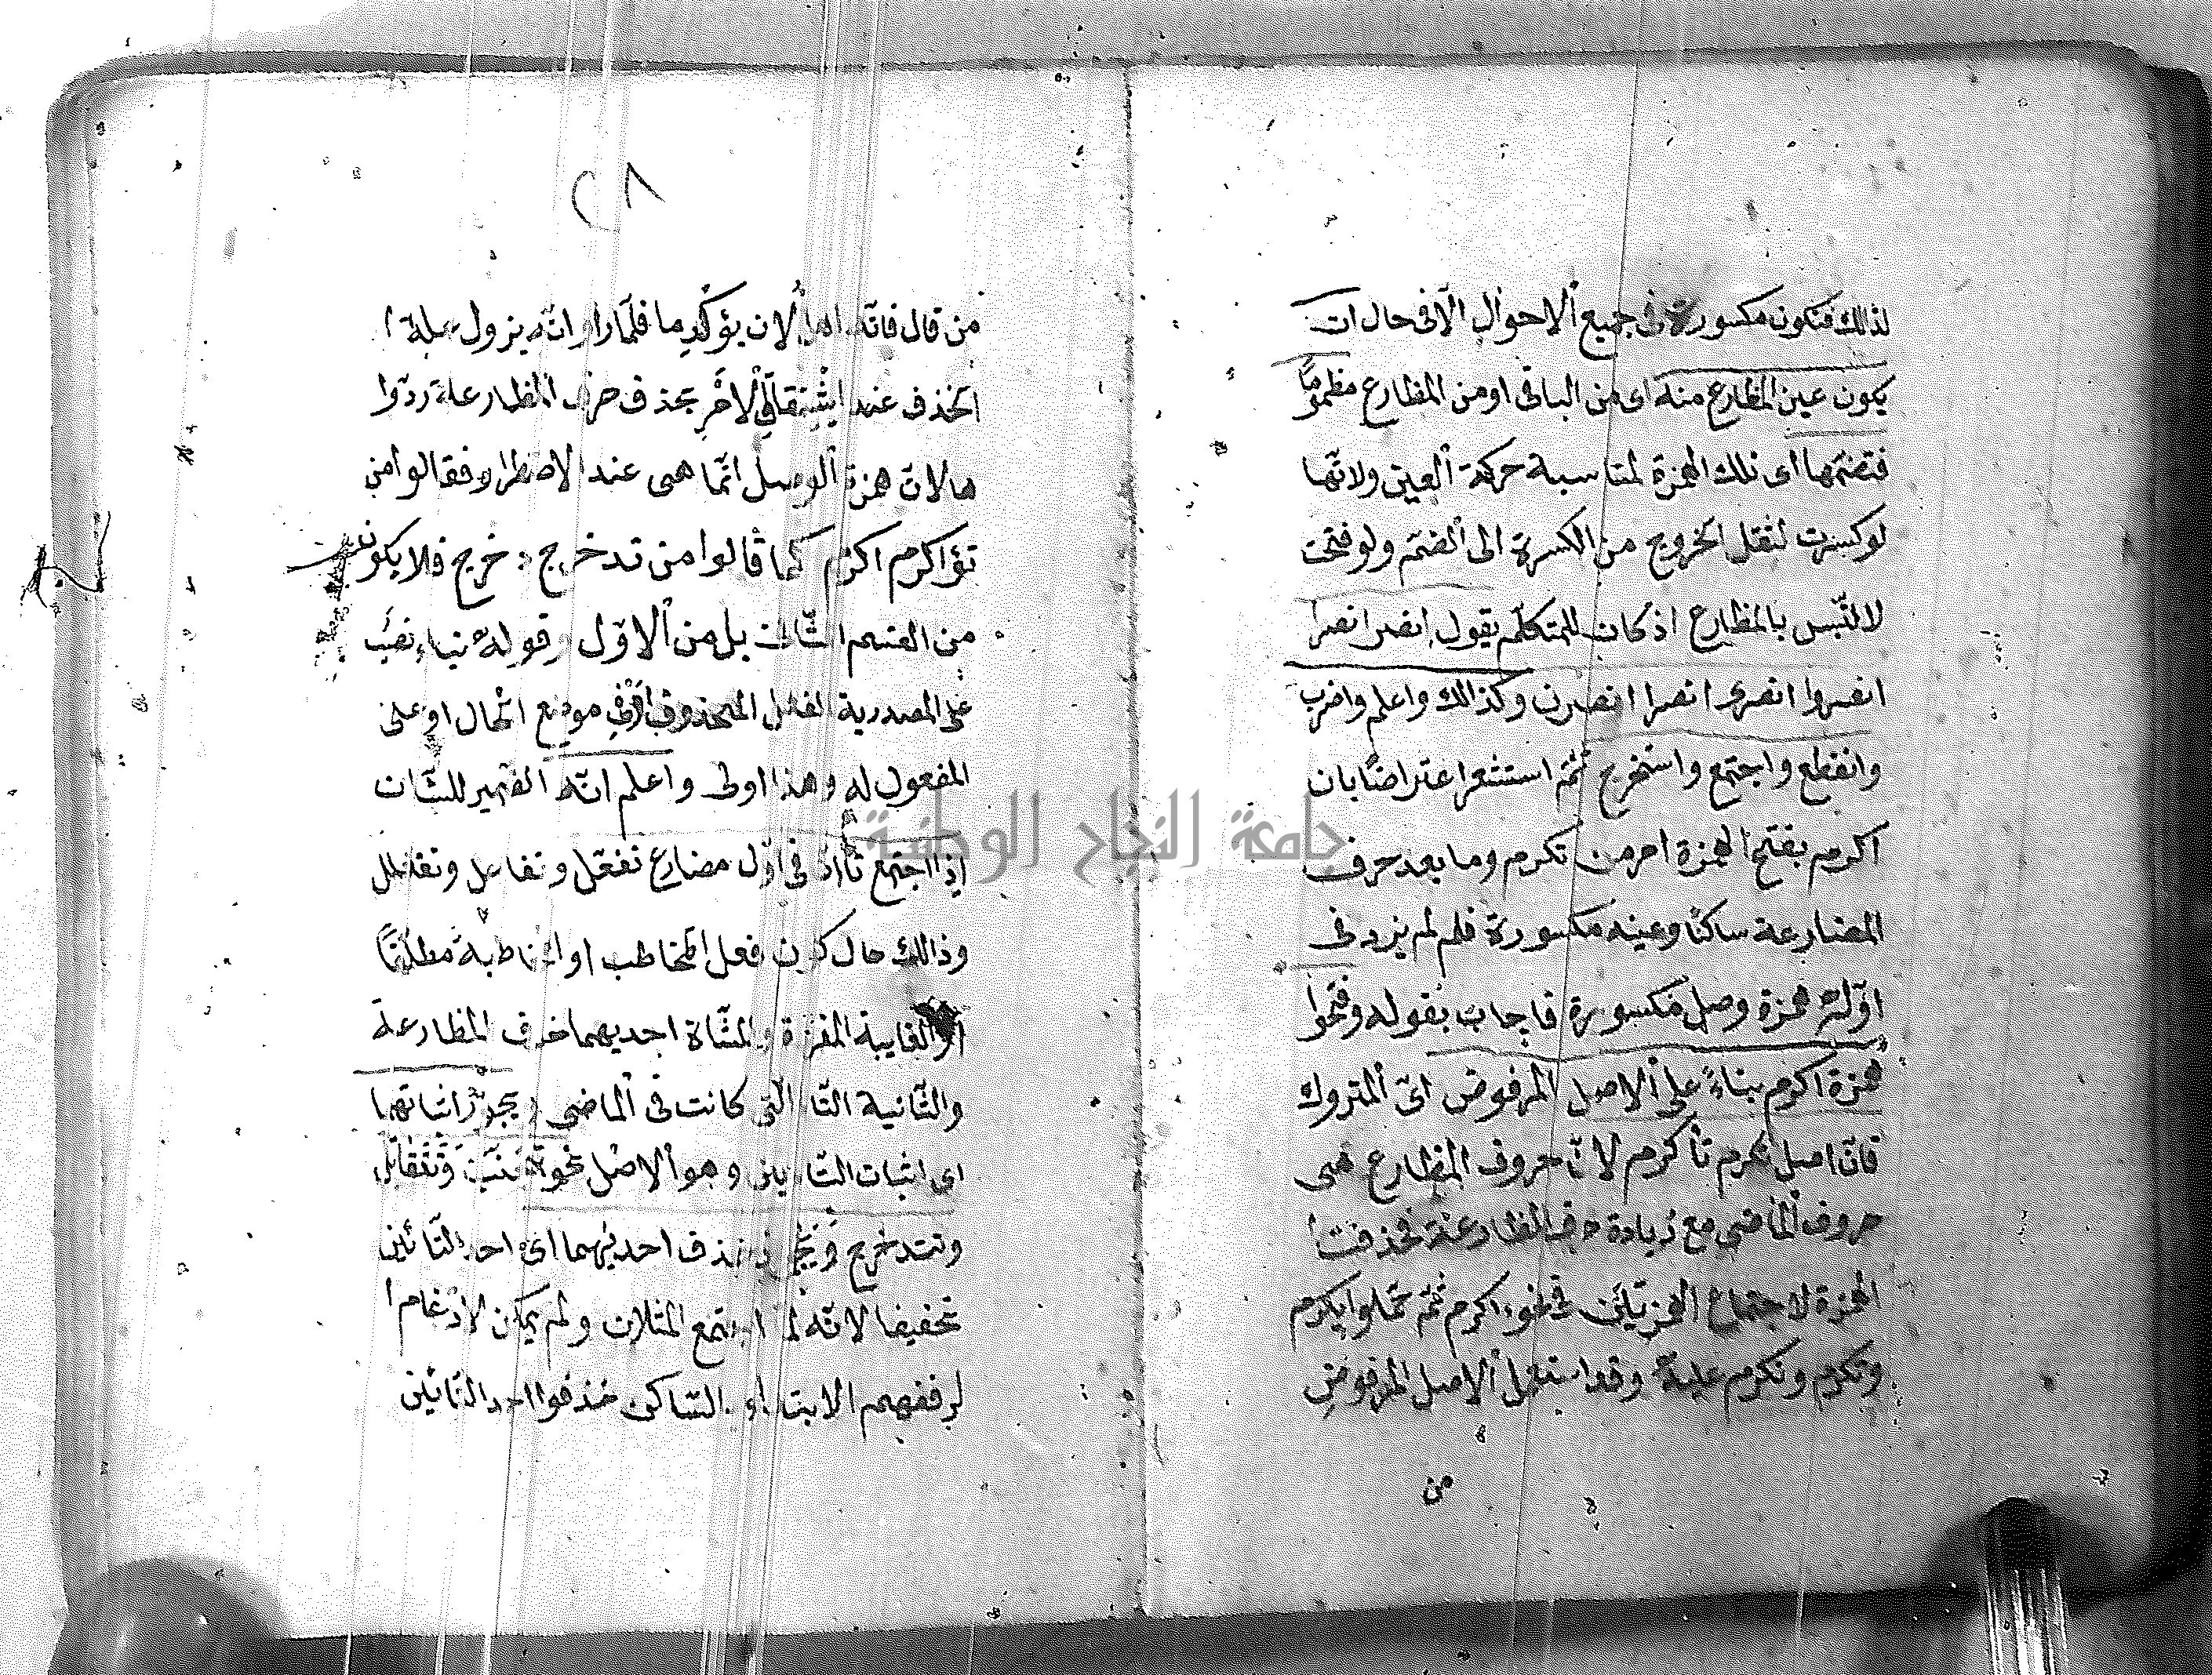 لذلك فتكون مكسورة فى جميع الاحوال الا فى حال ان
يكون عين المظارع منه اى من الباقى او من المظارع مظموما
فتضمها اى تلك الهمزة لمناسبة حركة العين ولانها
لو كسرت لثقل الخروج من الكسرة الى الضم ولو فتحت
لالتبس بالمظارع اذ كان للمتكلم يقول انصر انصرا
انصروا انصرى انصرا انصرن وكذالك واعلم واضرب
وانقطع واجتمع واستخرج ثم استشعر اعتراضا بان
اكرم بفتح الهمزة امر من تكرم وما بعد حرف
المضارعة ساكنا وعينه مكسورة فلم لم يزد فى
اوله همزة وصل مكسورة فاجاب بقوله وفتحوا
همزة اكرم بناء على الاصل المرفوض اى المتروك
فان اصل تكرم تأكرم لان حروف المظارع هى
حروف الماضى مع زيادة حرف المظارعة فحذفت
الهمزة لاجتماع الهمزتين فى نحو اكرم ثم حملوا يكرم
وتكرم ونكرم عليه وقد استعمل الاصل المرفوض
من
٢٨
من قال فانه اهل لان يؤكرما فلما راوا انه يزول علة
الحذف عند اشتقاق الامر بحذف حرف المظارعة ردوا
ها لان همزة الوصل انما هى عند الاضطرار فقالوا من
تؤاكرم اكرم كما قالوا من تدخرج دخرج فلا يكون
من القسم الثانى بل من الاول وقوله بناء نصب
على المصدرية لفعل المحذوف او فى موضع الحال او على
المفعول له وهذا اولى واعلم انه الضمير للشان
اذا اجتمع تاآن فى اول مضارع تفعل وتفاعل وتفعلل
وذالك حال كون فعل المخاطب او المخاطبة مطلقا
او الغايبة المفردة والمثناة احديهما حرف المظارعة
والثانية التاء التى كانت فى الماضى ويجوز اثباتهما
اى اثبات التائين وهو الاصل نحو تتجنب وتتقاتل
وتتدخرج ويجوز حذف احديهما اى احد التائين
تخفيفا لانه لما اجتمع المثلان ولم يمكن الادغام
لرفضهم الابتداء بالساكن حذفوا احد التائين
جامعة النجاح الوطنية